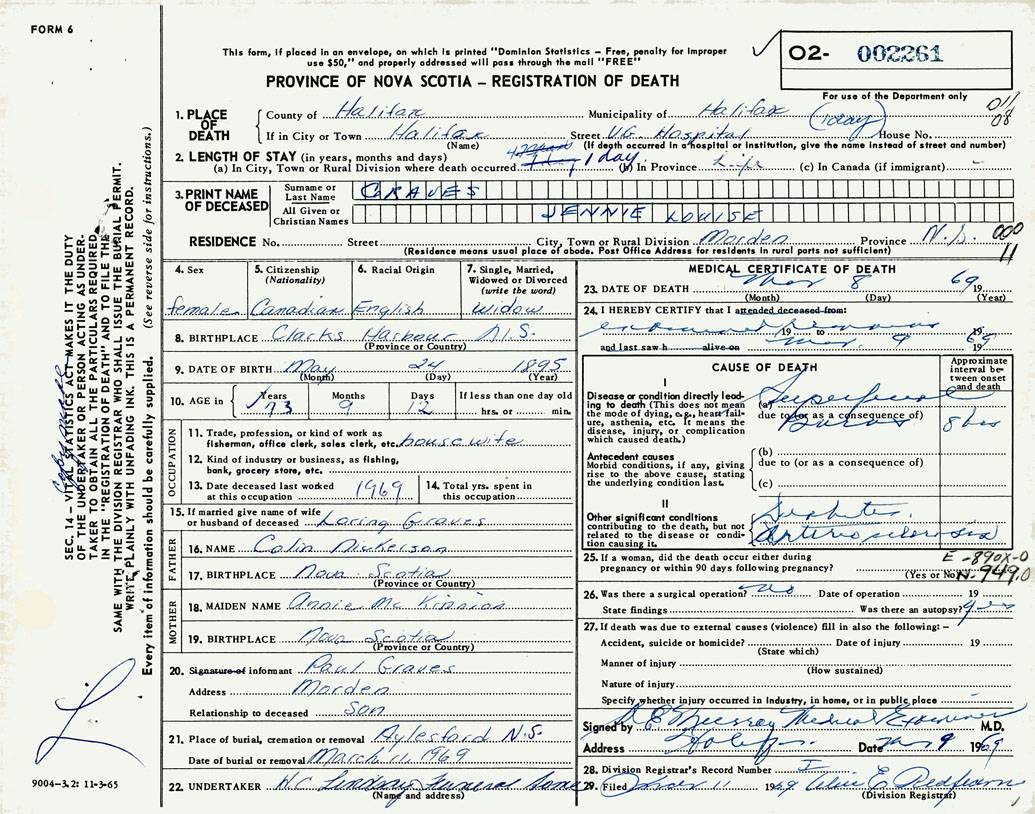 FORM 6
This form, if placed in an envelope, on which is printed "Dominion Statistics – Free, penalty for improper
use $50," and properly addressed will pass through the mail "FREE"
PROVINCE OF NOVA SCOTIA – REGISTRATION OF DEATH
O2- 002261
For use of the Department only
011
08
1. PLACE OF DEATH
County of Halifax Municipality of Halifax (1 day)
If in City or Town Halifax Street V.G. Hospital House No.
(Name) (If death occurred in a hospital or institution, give the name instead of street and number)
2. LENGTH OF STAY (in years, months and days)
(a) In City, Town or Rural Division where death occurred 1 day 1 day. (b) In Province Life (c) In Canada (if immigrant) -
3. PRINT NAME OF DECEASED
Surname or Last Name GRAVES
All Given or Christian Names JENNIE LOUISE
RESIDENCE No. Street City, Town or Rural Division Morden Province N.S. 000
11
(Residence means usual place of abode. Post Office Address for residents in rural parts not sufficient)
4. Sex
female
5. Citizenship
(Nationality)
Canadian
6. Racial Origin
English
7. Single, Married,
Widowed or Divorced
(write the word)
Widow
8. BIRTHPLACE Clarks Harbour N.S.
(Province or Country)
9. DATE OF BIRTH May 24 1895
(Month) (Day) (Year)
10. AGE in
Years 73
Months 9
Days 12
If less than one day old
hrs. or min.
OCCUPATION
11. Trade, profession, or kind of work as
fisherman, office clerk, sales clerk, etc. housewife
12. Kind of industry or business, as fishing,
bank, grocery store, etc.
13. Date deceased last worked
at this occupation 1969
14. Total yrs. spent in
this occupation
15. If married give name of wife
or husband of deceased Loring Graves
FATHER
16. NAME Colin Nickerson
17. BIRTHPLACE Nova Scotia
(Province or Country)
MOTHER
18. MAIDEN NAME Annie Mc
19. BIRTHPLACE Nova Scotia
(Province or Country)
20. Signature of informant Paul Graves
Address Morden
Relationship to deceased Son
21. Place of burial, cremation or removal Aylesford N.S.
Date of burial or removal March 11, 1969
22. UNDERTAKER W.C. Lindsay Funeral Home
(Name and address)
MEDICAL CERTIFICATE OF DEATH
23. DATE OF DEATH Mar 8 69 19
(Month) (Day) (Year)
24. I HEREBY CERTIFY that I attended deceased from:
examined remains 19 19
and last saw h alive on Mar. 9 69 19
CAUSE OF DEATH
Approximate
interval be-
tween onset
and death
I
Disease or condition directly lead-
ing to death (This does not mean
the mode of dying, e.g., heart fail-
ure, asthenia, etc. It means the
disease, injury, or complication
which caused death.)
(a) Superficial
due to (or as a consequence of)
Burns 8 hrs
Antecedent causes
Morbid conditions, if any, giving
rise to the above cause, stating
the underlying condition last.
(b)
due to (or as a consequence of)
(c)
II
Other significant conditions
contributing to the death, but not
related to the disease or condi-
tion causing it.
Diabetes.
Arteriosclerosis
25. If a woman, did the death occur either during
pregnancy or within 90 days following pregnancy?
(Yes or No)
E -890X-0
N- 949.0
26. Was there a surgical operation? No Date of operation 19
State findings Was there an autopsy? yes
27. If death was due to external causes (violence) fill in also the following: –
Accident, suicide or homicide? Date of injury 19
(State which)
Manner of injury
(How sustained)
Nature of injury
Specify whether injury occurred in Industry, in home, or in public place
Signed by Murray Medical Examiner M.D.
Address Halifax Date Mar 9 1969
28. Division Registrar's Record Number I
29. Filed Mar 11 1969
(Division Registrar)
SEC. 14 – VITAL STATISTICS ACT MAKES IT THE DUTY
OF THE UNDERTAKER OR PERSON ACTING AS UNDER-
TAKER TO OBTAIN ALL THE PARTICULARS REQUIRED
IN THE "REGISTRATION OF DEATH" AND TO FILE THE
SAME WITH THE DIVISION REGISTRAR WHO SHALL ISSUE THE BURIAL PERMIT.
WRITE PLAINLY WITH UNFADING INK. THIS IS A PERMANENT RECORD.
Every item of information should be carefully supplied. (See reverse side for instructions.)
9004–3.2: 11-3-65